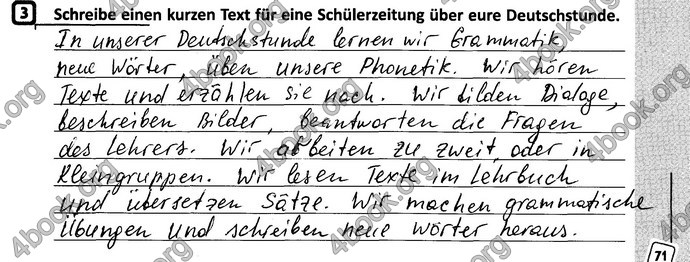 3 Schreibe einen kurzen Text für eine Schülerzeitung über eure Deutschstunde.
In unserer Deutschstunde lernen wir Grammatik,
neue Wörter, üben unsere Phonetik. Wir hören
Texte und erzählen sie nach. Wir bilden Dialoge,
beschreiben Bilder, beantworten die Fragen
des Lehrers. Wir arbeiten zu zweit oder in
Kleingruppen. Wir lesen Texte im Lehrbuch
und übersetzen Sätze. Wir machen grammatische
Übungen und schreiben neue Wörter heraus.
71
4book.org